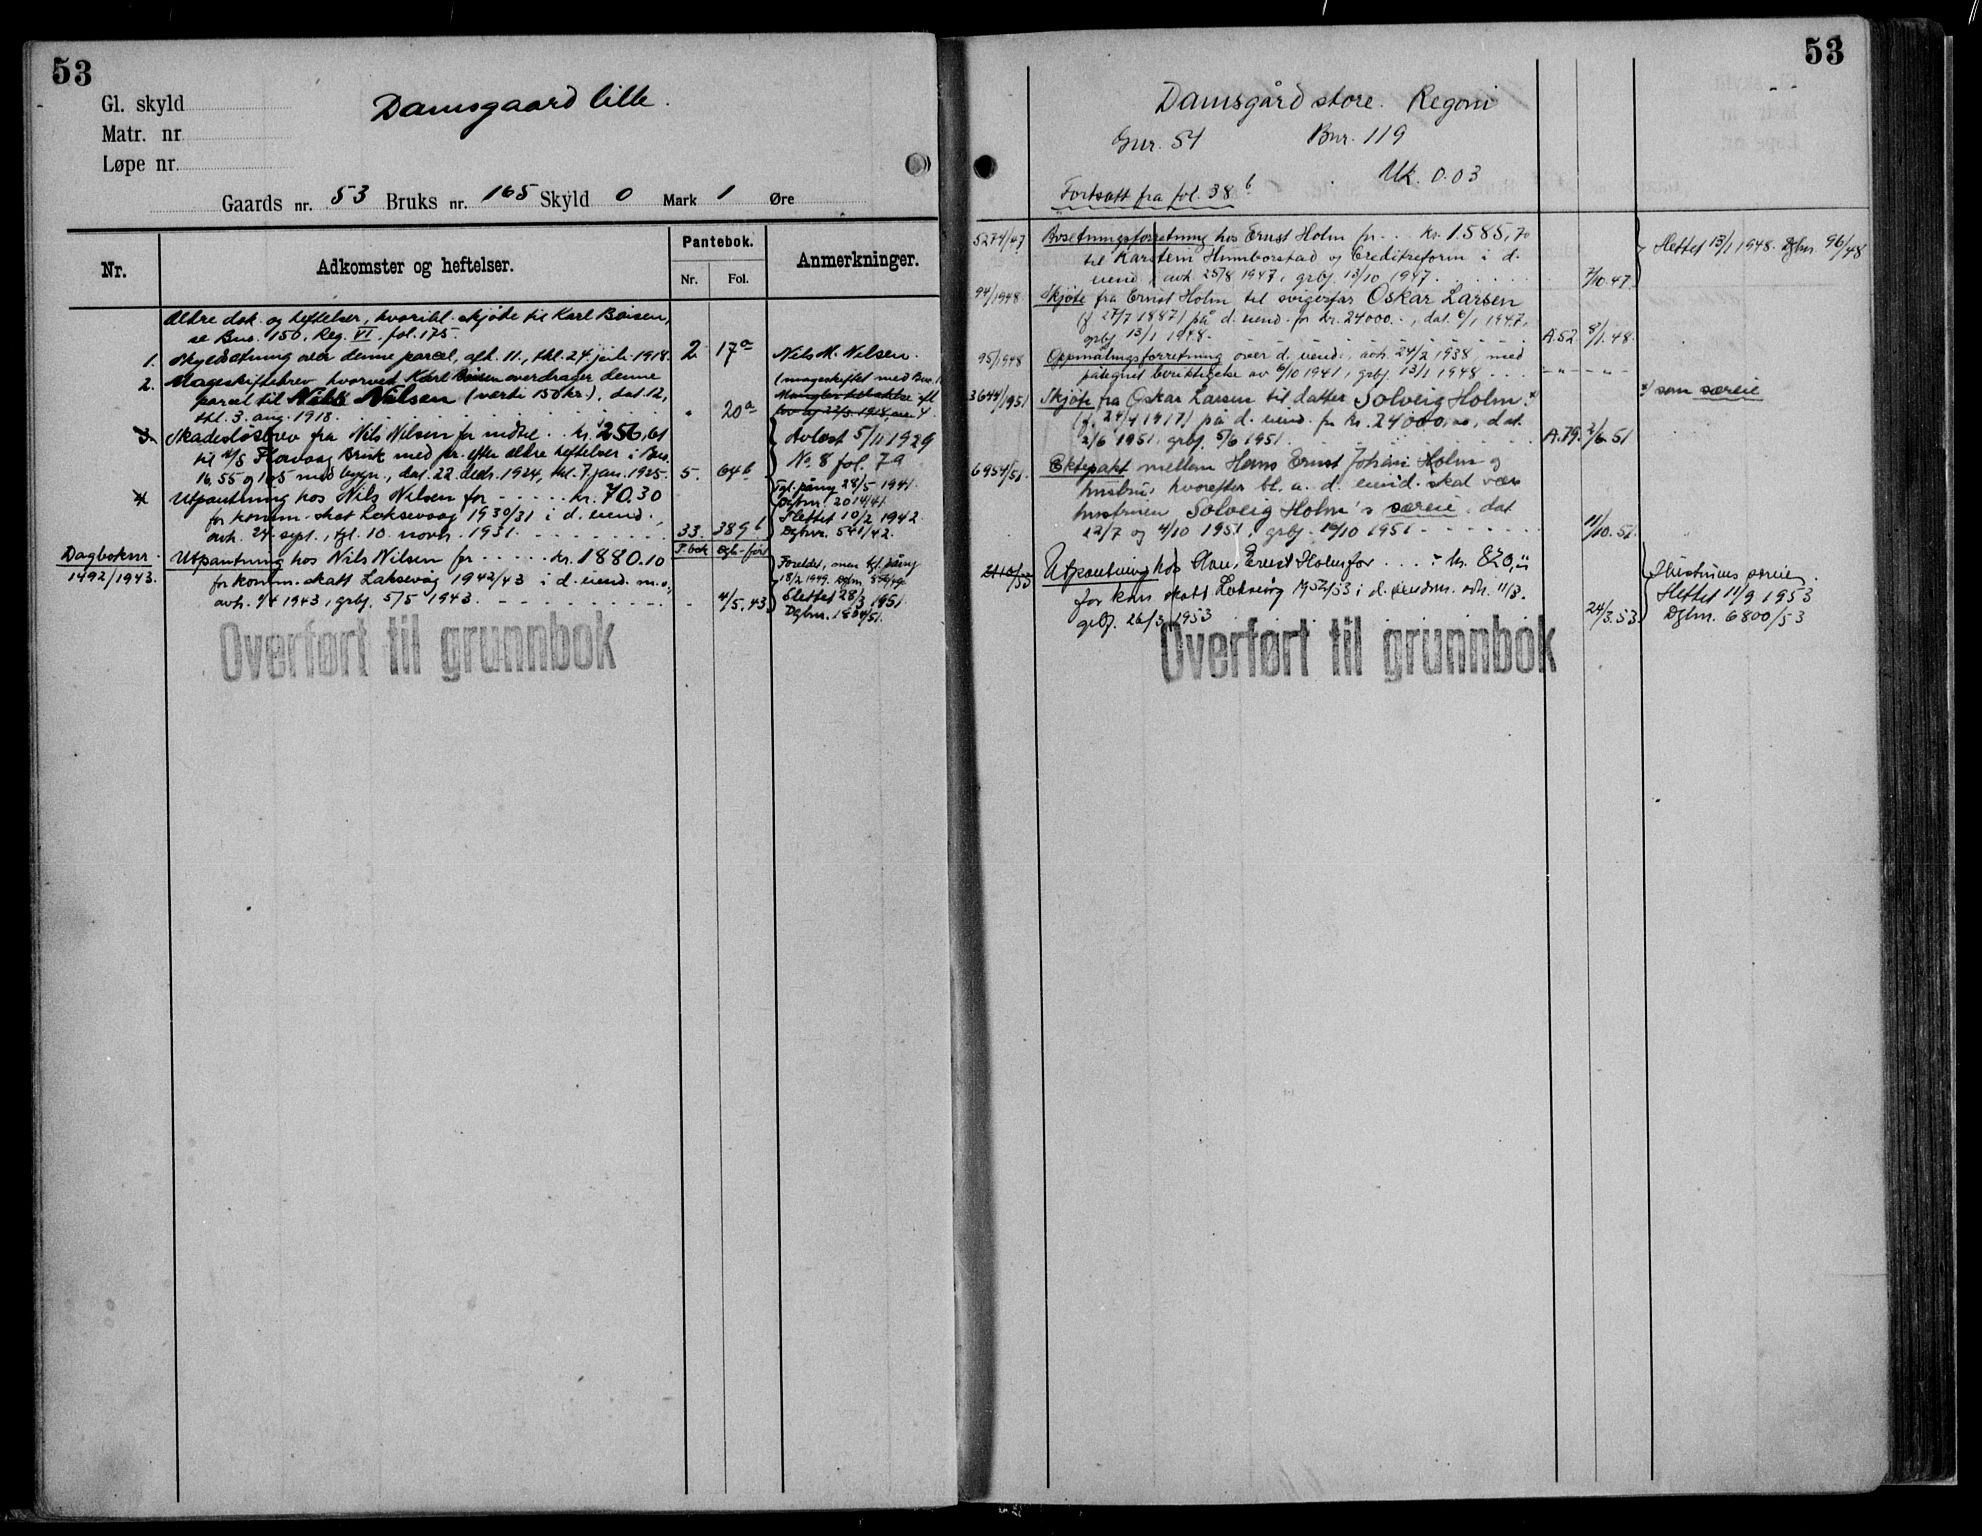 53
Gl. skyld
Damsgaard lille.
Matr. nr
Løpe nr.
Gaards nr. 53 Bruks nr. 165 Skyld 0 Mark 1 Øre
Nr.
Adkomster og heftelser.
Pantebok.
Nr.
Fol.
Anmerkninger.
Ældre dok. og heftelser, hvoribl. skjøte til Karl Boisen,
se Bno. 150, Reg. VI, fol. 175.
1. Skyldsætning over denne parcel, afh. 11., thl. 24. juli 1918. 2 17a Nils M. Nilsen.
2. Mageskiftebrev hvorved Karl Boisen overdrager denne (mageskiftet med Bno.
parcel til Nils Nilsen (værdi 150 kr.), dat. 12,
thl. 3. aug. 1918. " 20a
3. Skadesløsbrev fra Nils Nilsen for indtil .. kr. 256,61 Avløst 5/11 1929
til A/S Florvaag Bruk med pr. efter ældre heftelser i Bno. No. 8 fol. 79
16, 55 og 165 med bygn., dat. 22. decbr. 1924, thl. 7 jan. 1925. 5. 64b
4 Utpantning hos Nils Nilsen for - - - - - kr. 70.30 Tgl. påny 28/5 1941.
for komm. skat Laksevaag 1930/31 i d. eiend., Dgbnr. 2014/41.
avh. 24. sept., tgl. 10. novbr. 1931. 33. 389b Slettet 10/2 1942. Dgbnr. 541/42.
P. bok Dgb.-ført
Dagboknr. Utpantning hos Nils Nilsen for - - - - kr. 1880.10 Foreldet, men tgl. påny
1492/1943. for komm. skatt Laksevåg 1942/43 i d. eiend. m.v., 18/2 1949.
avh. 1/4 1943, grbf. 5/5 1943. - 4/5.43. Slettet 28/3 1951.
Dgbnr. 1804/51.
Overført til grunnbok
53
Damsgård store. Regoni
Gnr. 54 Bnr. 119
Mk. 0.03
Fortsatt fra fol. 38b
5274/47 Avsetningsforretning hos Ernst Holm for .. kr. 1.585,70
til Karsten Himborstad og Creditreform i d. Slettet 13/1 1948. Dgbnr. 96/48
eiend., avh. 25/8 1947, grbf. 13/10 1947. 7/10.47.
94/1948. Skjøte fra Ernst Holm til svigerfar Oskar Larsen
(f. 27/7 1887) på d. eiend. for kr. 24000.-, dat. 6/1 1947,
grbf 13/1 1948. A.52 8/1.48.
95/1948 Oppmålingsforretning over d. eiend., avh. 24/2 1938, med
påtegnet beriktigelse av 6/10 1941, grbf. 13/1 1948 - - -
3644/1951 Skjøte fra Oskar Larsen til datter Solveig Holm x) x) som særeie
(f. 24/4 1917) på d. eiend. for kr. 24000,00, dat.
2/6 1951, grbf. 5/6 1951. A.79. 2/6.51
6954/51. Ektepakt mellem Hans Ernst Johan Holm og
hustru, hvorefter bl. a. d. eiend. skal være
hustruen Solveig Holm's særeie, dat.
12/7 og 4/10 1951, grbf. 16/10 1951 11/10.51.
2110/53 Utpantning hos Hans Ernst Holm for .... kr. 820,00 Hustruens særeie.
for kom. skatt Laksevåg 1952/53 i d. eiendom. avh. 11/3. Slettet 11/9 1953
grbf. 26/3 1953 24/3.53 Dgbnr. 6800/53
Overført til grunnbok